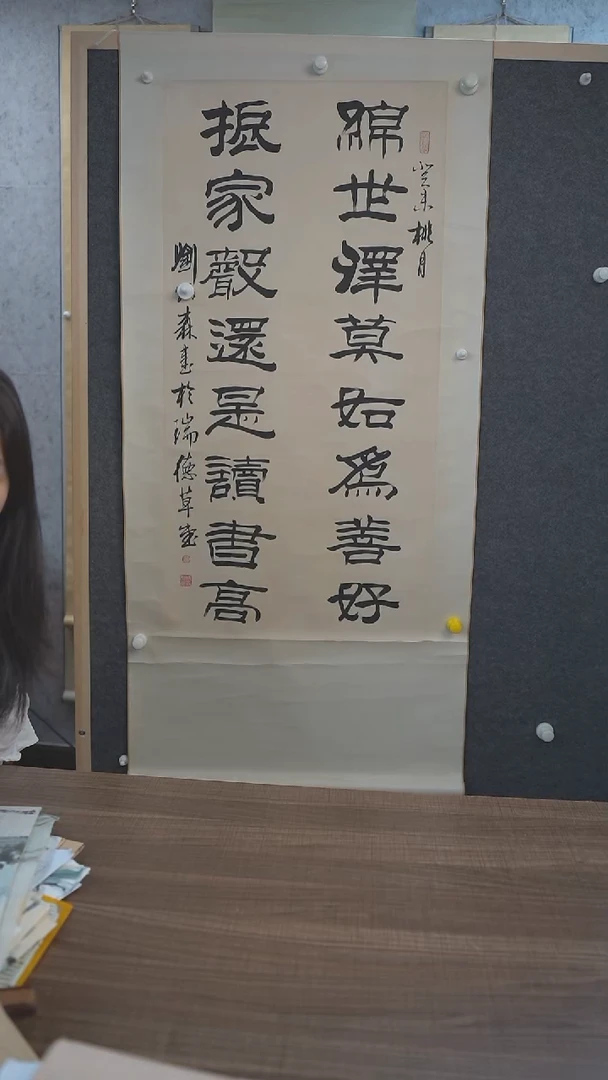 癸未桃月
綿世澤莫如爲善好
振家聲還是讀書高
劉森書於瑞德草堂